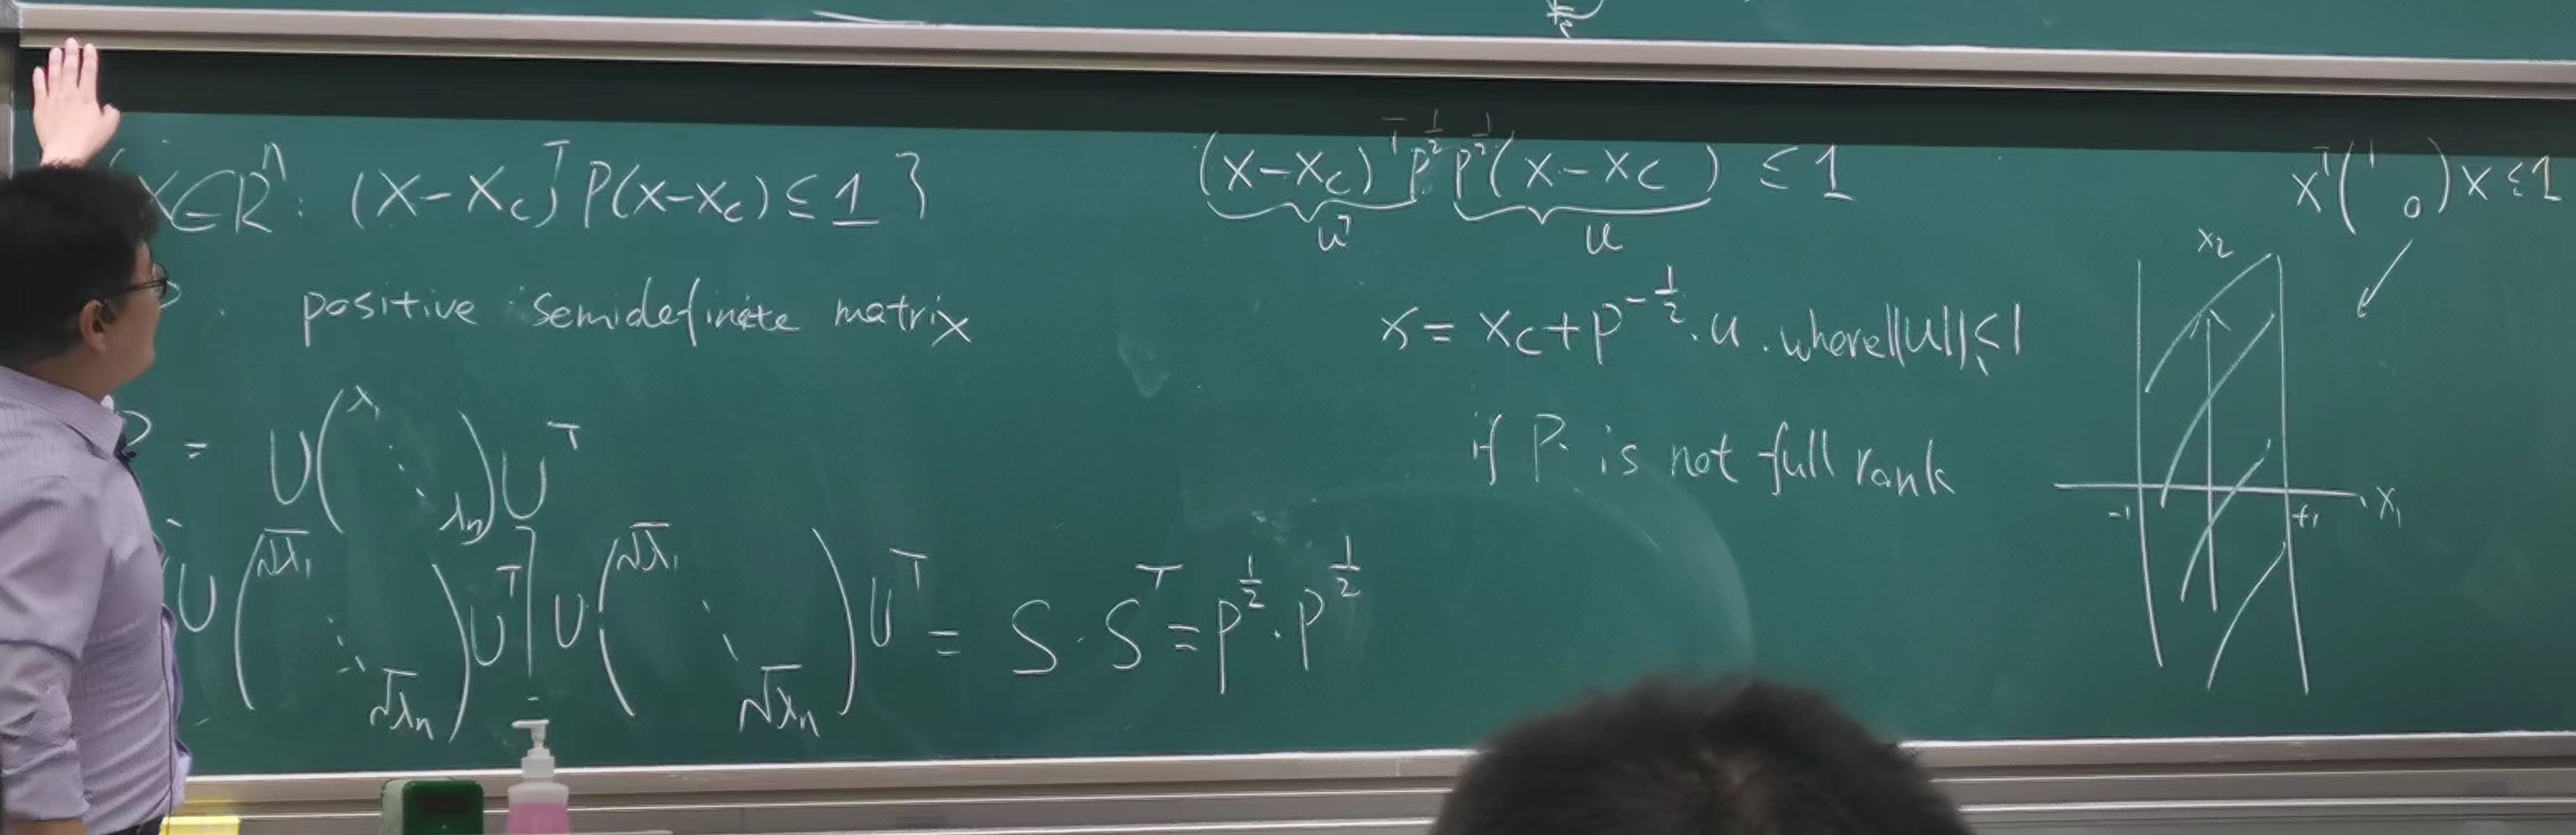 x∈R^n : (x-x_c)^T P(x-x_c) ≤ 1 }
positive semidefinite matrix
= U(λ_1 ⋱ λ_n)U^T
U(√λ_1 ⋱ √λ_n)U^T] U(√λ_1 ⋱ √λ_n)U^T = S·S^T = P^{1/2}·P^{1/2}
(x-x_c)^T P^{1/2} P^{1/2}(x-x_c) ≤ 1
u^T u
x = x_c + P^{-1/2}·u. where ||u|| ≤ 1
if P is not full rank
x^T(1 0)x ≤ 1
x_2
-1 +1 x_1